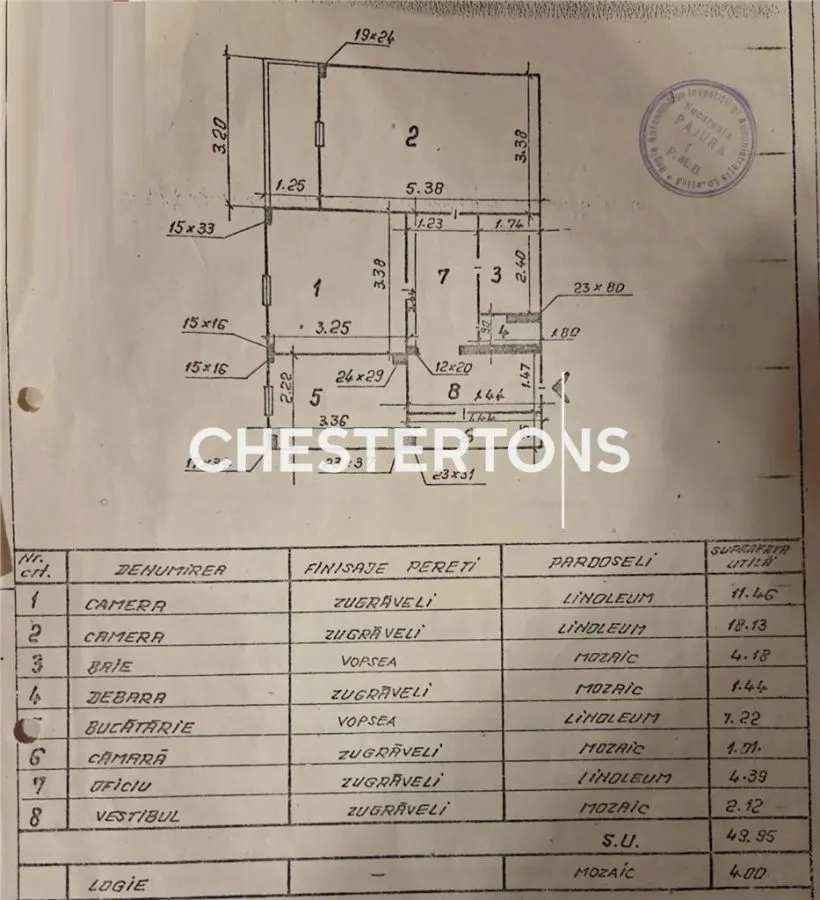 19x24
3.20
2
3.38
1.25
5.38
15x33
1.23
1.74
1
3.38
7
3
2.40
23x80
15x16
3.25
4
1.80
15x16
24x29
12x20
2.22
5
8
1.44
1.47
3.36
1.44
CHESTERTONS
23x31
Regia Autonomă
Sucursala
PAJURA
1
P.M.B.
Nr. crt. DENUMIREA FINISAJE PERETI PARDOSELI SUPRAFATA UTILĂ
1 CAMERA ZUGRĂVELI LINOLEUM 11.46
2 CAMERA ZUGRĂVELI LINOLEUM 18.13
3 BAIE VOPSEA MOZAIC 4.18
4 DEBARA ZUGRĂVELI MOZAIC 1.44
BUCĂTĂRIE VOPSEA LINOLEUM 7.22
6 CĂMARĂ ZUGRĂVELI MOZAIC
7 OFICIU ZUGRĂVELI LINOLEUM 4.39
8 VESTIBUL ZUGRĂVELI MOZAIC 2.12
S.U. 49.95
LOGIE - MOZAIC 4.00